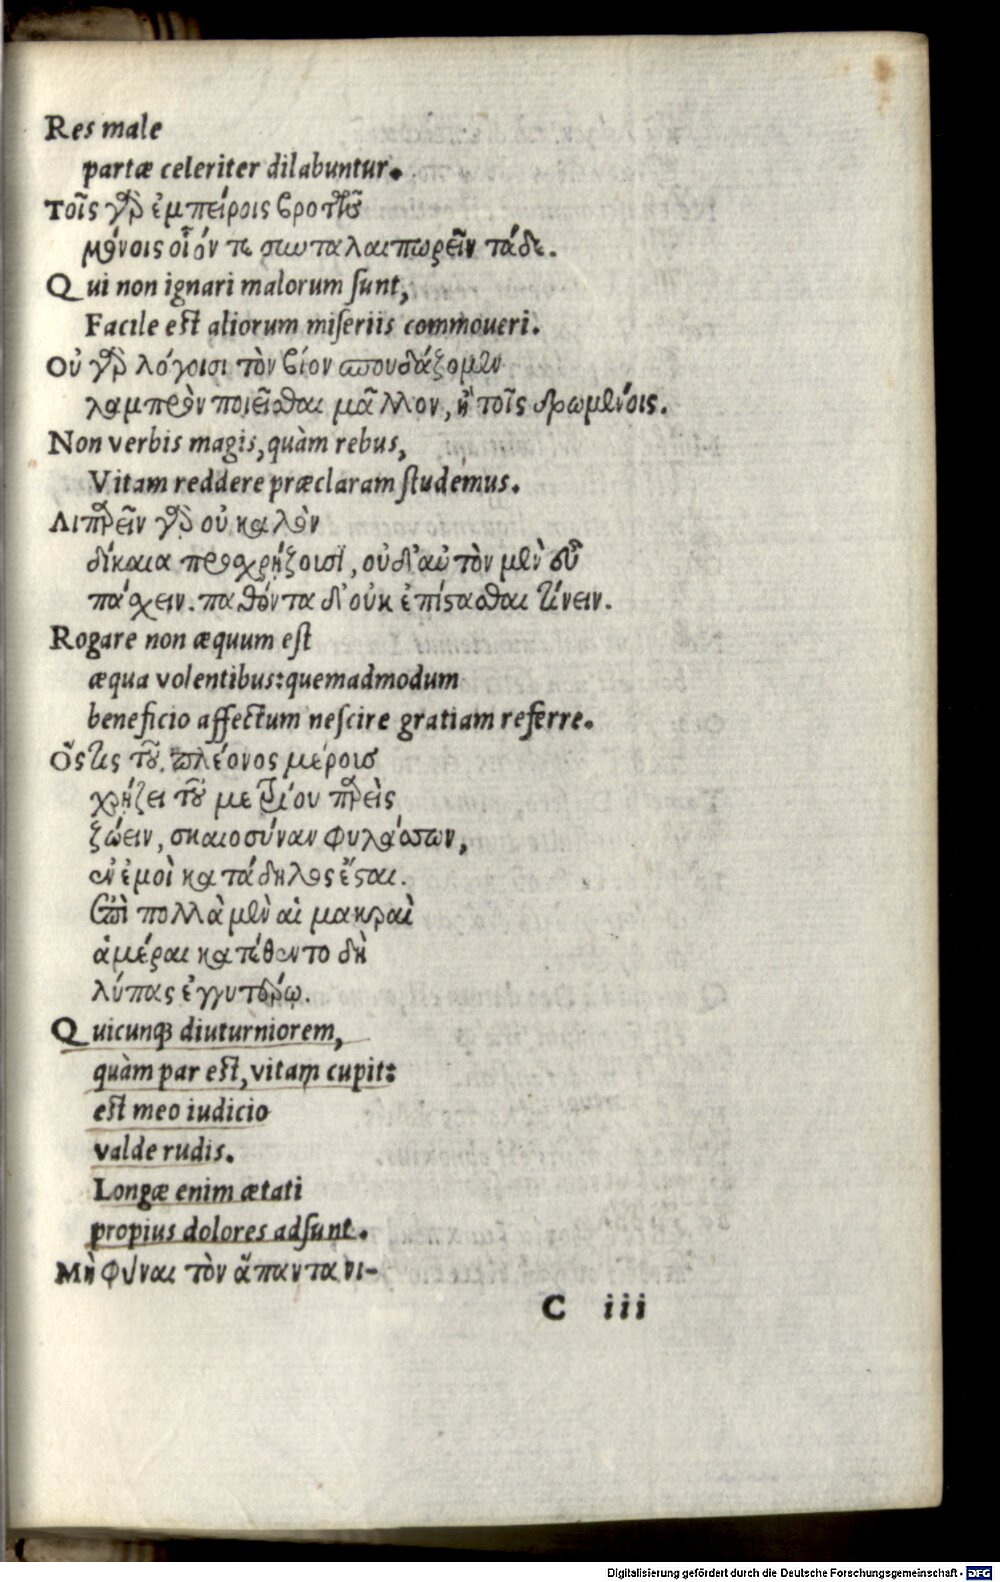 Res male
partæ celeriter dilabuntur.
Τοῖς γὰρ ἐμπείροις βροτῶν
μόνοις οἷόν τε συνταλαιπωρεῖν τάδε.
Qui non ignari malorum sunt,
Facile est aliorum miseriis commoueri.
Οὐ γὰρ λόγοισι τὸν βίον σπουδάζομεν
λαμπρὸν ποιεῖσθαι μᾶλλον, ἢ τοῖς δρωμένοις.
Non verbis magis, quàm rebus,
Vitam reddere præclaram studemus.
Λιπαρεῖν γὰρ οὐ καλὸν
δίκαια προσχρῄζουσι, οὐδ' αὐτὸν μὲν εὖ
πάσχειν. παθόντα δ' οὐκ ἐπίστασθαι τίνειν.
Rogare non æquum est
æqua volentibus: quemadmodum
beneficio affectum nescire gratiam referre.
Ὅστις τοῦ πλέονος μέρους
χρῄζει τοῦ μετρίου παρεὶς
ζώειν, σκαιοσύναν φυλάσσων,
ἐν ἐμοὶ κατάδηλος ἔσται.
Ἐπεὶ πολλὰ μὲν αἱ μακραὶ
ἁμέραι κατέθεντο δὴ
λύπας ἐγγυτέρω.
Quicunq; diuturniorem,
quàm par est, vitam cupit:
est meo iudicio
valde rudis.
Longæ enim ætati
propius dolores adsunt.
Μὴ φῦναι τὸν ἅπαντα νι-
C iii
Digitalisierung gefördert durch die Deutsche Forschungsgemeinschaft - DFG